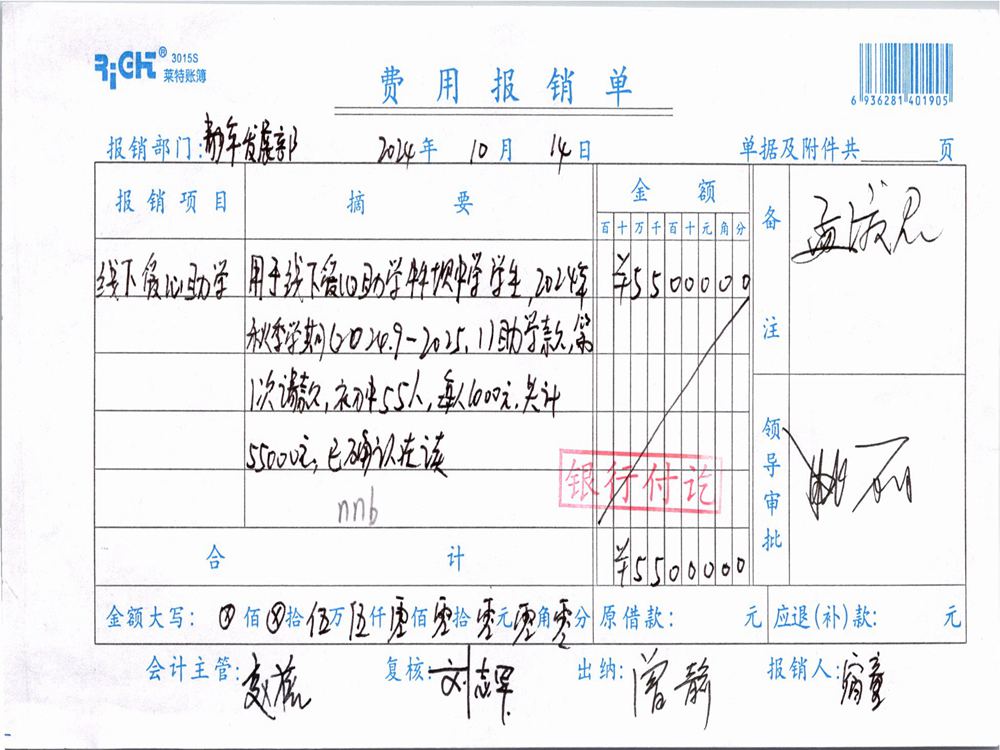 RiGHt® 3015S
莱特账簿
费用报销单
6 936281 401905
报销部门:青少年发展部 2024年 10月 14日 单据及附件共 页
报销项目 摘要 金额 备注
百十万千百十元角分
线下爱心助学 用于线下爱心助学牛坝中学学生,2024年 ¥5500000
秋季学期(2024.9-2025.1)助学款,第
1次请款,初中55人,每人1000元,共计
55000元,已确认在读
银行付讫
nnb
领导审批
合计 ¥5500000
金额大写: ⊗佰⊗拾伍万伍仟零佰零拾零元零角零分 原借款: 元 应退(补)款: 元
会计主管: 复核: 刘志军 出纳: 曾静 报销人: